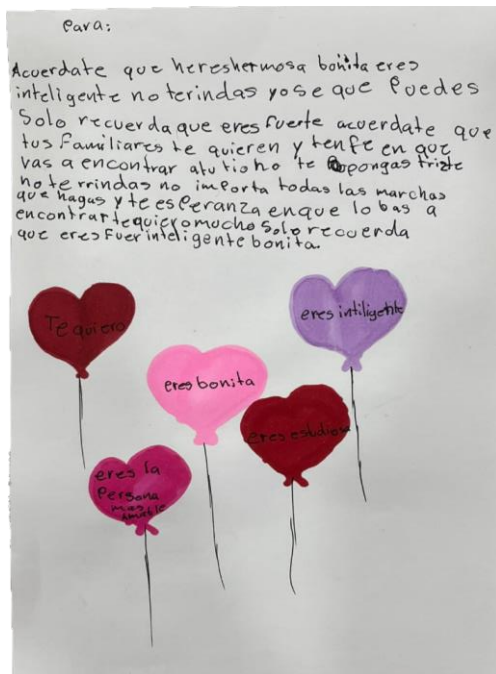 Para:
Acuerdate que hereshermosa bonita eres
inteligente no terindas yo se que Puedes
Solo recuerda que eres fuerte acuerdate que
tus Familiares te quieren y tenfe en que
vas a encontrar atutio no te pongas triste
no te rrindas no importa todas las marchas
que hagas y te esperanza en que lo bas a
encontrar te quiero mucho Solo recuerda
que eres Fuer inteligente bonita.
Te quiero
eres intiligente
eres bonita
eres estudiosa
eres la
Persona
mas
amable